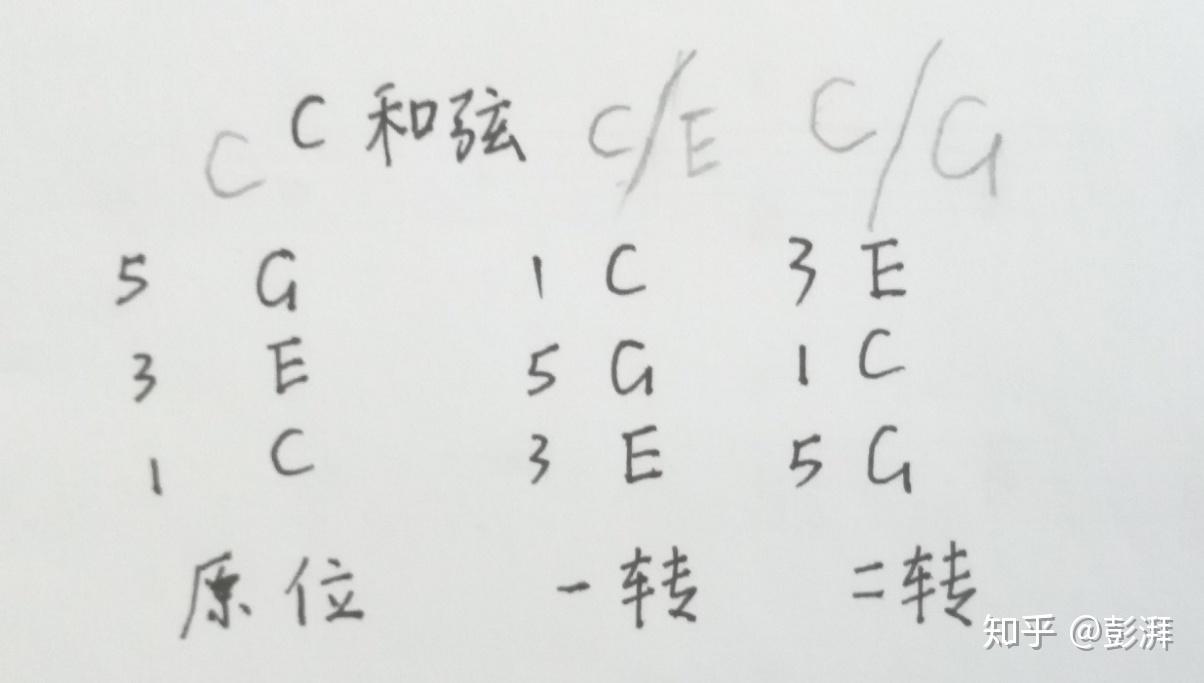 C C 和弦 C/E C/G
5 G 1 C 3 E
3 E 5 G 1 C
1 C 3 E 5 G
原位 一转 二转
知乎 @彭湃